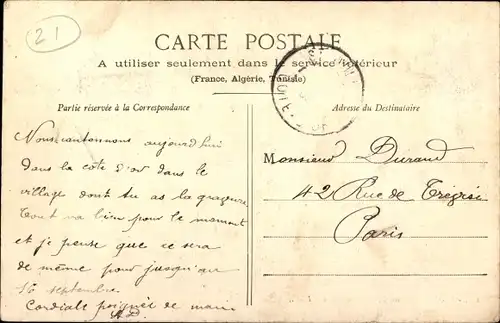 21
CARTE POSTALE
A utiliser seulement dans le service intérieur
(France, Algérie, Tunisie)
Partie réservée à la Correspondance
Adresse du Destinataire
Nous cantonnons aujourd'hui
dans la côte d'or dans le
village dont tu as la gravure
Tout va bien pour le moment
et je pense que ce sera
de même pour jusqu'au
16 septembre
Cordiale poignée de main
Monsieur Durand
42 Rue de
Paris